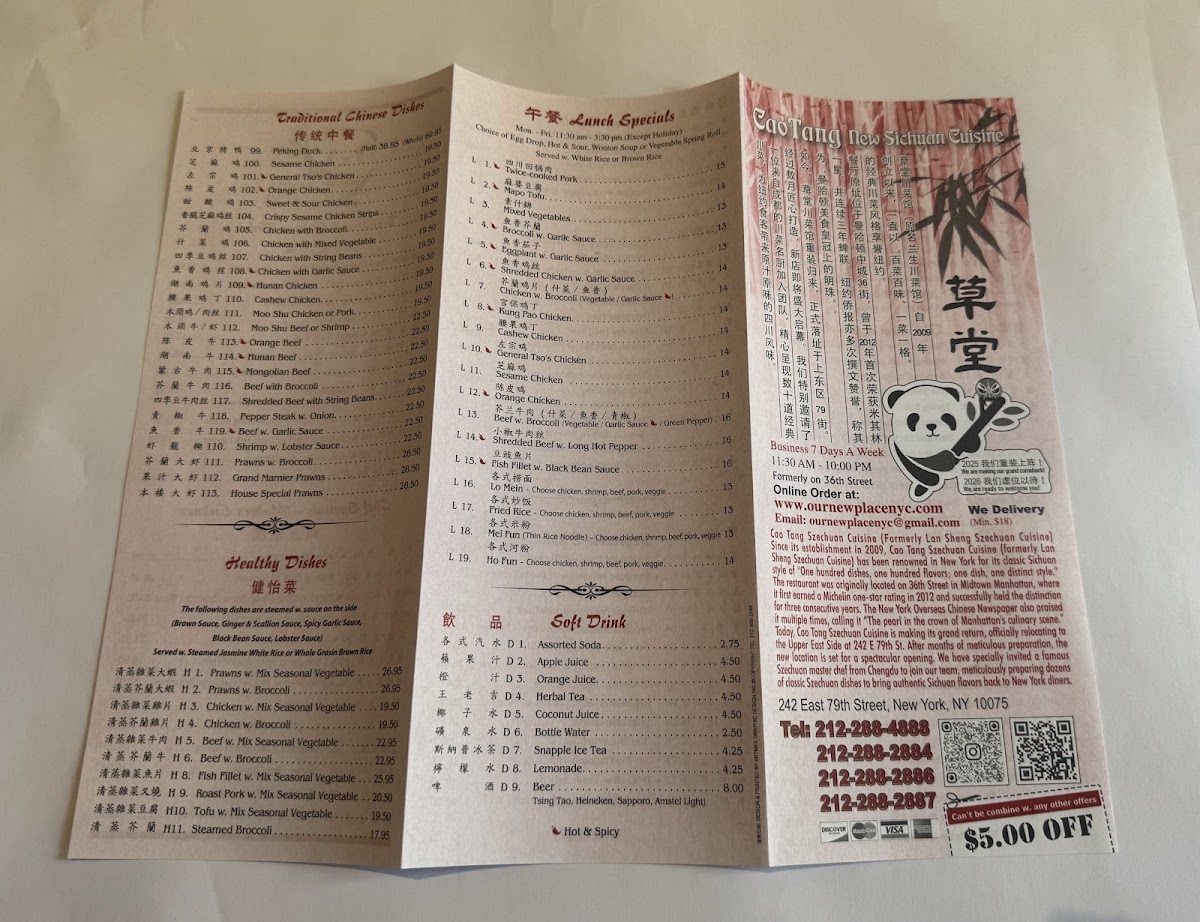 Traditional Chinese Dishes
传统中餐
北京烤鸭 99. Peking Duck (Half) 38.95 (Whole) 69.95
芝麻鸡 100. Sesame Chicken 19.50
左宗鸡 101. General Tso's Chicken 19.50
陈皮鸡 102. Orange Chicken 19.50
甜酸鸡 103. Sweet & Sour Chicken 19.50
香脆芝麻鸡丝 104. Crispy Sesame Chicken Strips 19.50
芥蘭鸡 105. Chicken with Broccoli 19.50
什菜鸡 106. Chicken with Mixed Vegetable 19.50
四季豆鸡丝 107. Chicken with String Beans 19.50
魚香鸡丝 108. Chicken with Garlic Sauce 19.50
湖南鸡片 109. Hunan Chicken 19.50
腰果鸡丁 110. Cashew Chicken 19.50
木須鸡/肉丝 111. Moo Shu Chicken or Pork 19.50
木須牛/虾 112. Moo Shu Beef or Shrimp 22.50
陈皮牛 113. Orange Beef 22.50
湖南牛 114. Hunan Beef 22.50
蒙古牛肉 115. Mongolian Beef 22.50
芥蘭牛肉 116. Beef with Broccoli 22.50
四季豆牛肉丝 117. Shredded Beef with String Beans 22.50
青椒牛 118. Pepper Steak w. Onion 22.50
魚香牛 119. Beef w. Garlic Sauce 22.50
虾龍糊 110. Shrimp w. Lobster Sauce 22.50
芥蘭大虾 111. Prawns w. Broccoli 26.50
果汁大虾 112. Grand Marnier Prawns 28.50
本楼大虾 113. House Special Prawns 28.50
Healthy Dishes
健怡菜
The following dishes are steamed w. sauce on the side
(Brown Sauce, Ginger & Scallion Sauce, Spicy Garlic Sauce,
Black Bean Sauce, Lobster Sauce)
Served w. Steamed Jasmine White Rice or Whole Grasin Brown Rice
清蒸雜菜大蝦 H 1. Prawns w. Mix Seasonal Vegetable 26.95
清蒸芥蘭大蝦 H 2. Prawns w. Broccoli 26.95
清蒸雜菜雞片 H 3. Chicken w. Mix Seasonal Vegetable 19.50
清蒸芥蘭雞片 H 4. Chicken w. Broccoli 19.50
清蒸雜菜牛肉 H 5. Beef w. Mix Seasonal Vegetable 22.95
清蒸芥蘭牛 H 6. Beef w. Broccoli 22.95
清蒸雜菜魚片 H 8. Fish Fillet w. Mix Seasonal Vegetable 25.95
清蒸雜菜叉燒 H 9. Roast Pork w. Mix Seasonal Vegetable 20.50
清蒸雜菜豆腐 H10. Tofu w. Mix Seasonal Vegetable 19.50
清蒸芥蘭 H11. Steamed Broccoli 17.95
午餐 Lunch Specials
Mon. - Fri. 11:30 am - 3:30 pm (Except Holiday)
Choice of Egg Drop, Hot & Sour, Wonton Soup or Vegetable Spring Roll
Served w. White Rice or Brown Rice
四川回锅肉
L 1. Twice-cooked Pork 15
麻婆豆腐
L 2. Mapo Tofu 14
素什錦
L 3. Mixed Vegetables 13
魚香芥蘭
L 4. Broccoli w. Garlic Sauce 13
魚香茄子
L 5. Eggplant w. Garlic Sauce 13
魚香鸡丝
L 6. Shredded Chicken w. Garlic Sauce 14
芥蘭鸡片 (什菜 / 魚香)
L 7. Chicken w. Broccoli (Vegetable / Garlic Sauce) 14
宫保鸡丁
L 8. Kung Pao Chicken 14
腰果鸡丁
L 9. Cashew Chicken 14
左宗鸡
L 10. General Tso's Chicken 14
芝麻鸡
L 11. Sesame Chicken 14
陈皮鸡
L 12. Orange Chicken 14
芥兰牛肉 (什菜 / 魚香 / 青椒)
L 13. Beef w. Broccoli (Vegetable / Garlic Sauce / Green Pepper) 16
小椒牛肉丝
L 14. Shredded Beef w. Long Hot Pepper 16
豆豉魚片
L 15. Fish Fillet w. Black Bean Sauce 16
各式捞面
L 16. Lo Mein - Choose chicken, shrimp, beef, pork, veggie 13
各式炒饭
L 17. Fried Rice - Choose chicken, shrimp, beef, pork, veggie 13
各式米粉
L 18. Mei Fun (Thin Rice Noodle) - Choose chicken, shrimp, beef, pork, veggie 13
各式河粉
L 19. Ho Fun - Choose chicken, shrimp, beef, pork, veggie 14
飲品 Soft Drink
各式汽水 D 1. Assorted Soda 2.75
蘋果汁 D 2. Apple Juice 4.50
橙汁 D 3. Orange Juice 4.50
王老吉 D 4. Herbal Tea 4.50
椰子水 D 5. Coconut Juice 4.50
礦泉水 D 6. Bottle Water 2.50
斯納普冰茶 D 7. Snapple Ice Tea 4.25
檸檬水 D 8. Lemonade 4.25
啤酒 D 9. Beer 8.00
Tsing Tao, Heineken, Sapporo, Amstel Light)
Hot & Spicy
CaoTang New Sichuan Cuisine
草堂川菜馆（原名兰生川菜馆）自2009年
创立以来，一直以“百菜百味，一菜一格”
的经典川菜风格享誉纽约。
餐厅原址位于曼哈顿中城36街，曾于2012年首次荣获米其林
一星，并连续三年蝉联，纽约侨报亦多次撰文赞誉，称其
为“曼哈顿美食皇冠上的明珠。”
如今，草堂川菜馆重装归来，正式落址于上东区79街。
经过数月匠心打造，新店即将盛大启幕。我们特别邀请了
一位来自成都的川菜名厨加入团队，精心呈现数十道经典
川菜，为纽约食客带来原汁原味的四川风味。
草堂
2025 我们重装上阵！
We are making our grand comeback!
2026 我们虚位以待！
We are ready to welcome you!
Business 7 Days A Week
11:30 AM - 10:00 PM
Formerly on 36th Street
Online Order at:
www.ournewplacenyc.com
Email: ournewplacenyc@gmail.com
We Delivery
(Min. $18)
Cao Tang Szechuan Cuisine (Formerly Lan Sheng Szechuan Cuisine)
Since its establishment in 2009, Cao Tang Szechuan Cuisine (formerly Lan
Sheng Szechuan Cuisine) has been renowned in New York for its classic Sichuan
style of "One hundred dishes, one hundred flavors; one dish, one distinct style."
The restaurant was originally located on 36th Street in Midtown Manhattan, where
it first earned a Michelin one-star rating in 2012 and successfully held the distinction
for three consecutive years. The New York Overseas Chinese Newspaper also praised
it multiple times, calling it "The pearl in the crown of Manhattan's culinary scene."
Today, Cao Tang Szechuan Cuisine is making its grand return, officially relocating to
the Upper East Side at 242 E 79th St. After months of meticulous preparation, the
new location is set for a spectacular opening. We have specially invited a famous
Szechuan master chef from Chengdu to join our team, meticulously preparing dozens
of classic Szechuan dishes to bring authentic Sichuan flavors back to New York diners.
242 East 79th Street, New York, NY 10075
Tel: 212-288-4888
212-288-2884
212-288-2886
212-288-2887
DISCOVER MasterCard VISA
Can't be combine w. any other offers
$5.00 OFF